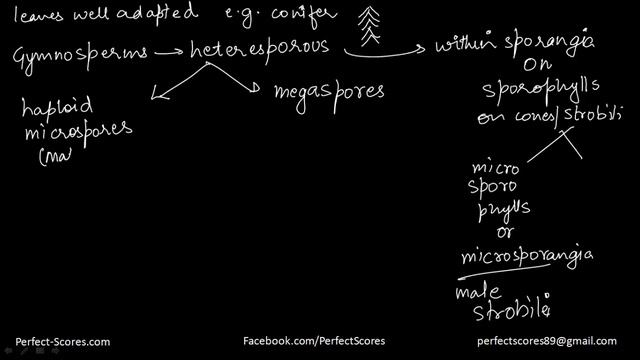 leaves well adapted e.g. conifer
Gymnosperms → heteresporous → within sporangia
on
sporophylls
on cones/strobili
haploid
microspores
(ma
megaspores
micro
sporo
phylls
or
microsporangia
male
strobili
Perfect-Scores.com
Facebook.com/PerfectScores
perfectscores89@gmail.com